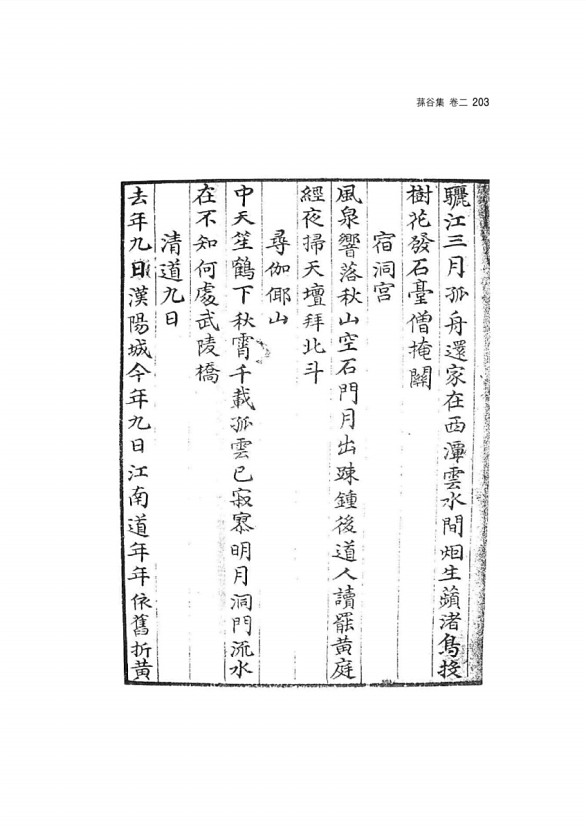 蓀谷集 卷二 203
驪江三月孤舟還家在西潭雲水間烟生蘋渚鳥投
樹花發石臺僧掩關
宿洞宮
風泉響落秋山空石門月出踈鍾後道人讀罷黃庭
經夜掃天壇拜北斗
尋伽倻山
中天笙鶴下秋霄千載孤雲已寂寥明月洞門流水
在不知何處武陵橋
清道九日
去年九日漢陽城今年九日江南道年年依舊折黃